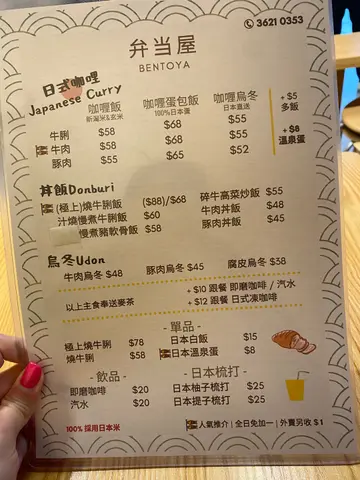 3621 0353
弁当屋
BENTOYA
日式咖哩
Japanese Curry
咖喱飯 咖喱蛋包飯 咖喱烏冬 +$5
新潟米&玄米 100%日本蛋 日本直送 多飯
牛脷 $58 $68 $55
牛肉 $58 $68 $55 +$8
豚肉 $55 $65 $52 溫泉蛋
丼飯Donburi
(極上)燒牛脷飯 ($88)/$68 碎牛高菜炒飯 $55
汁燒慢煮牛脷飯 $60 牛肉丼飯 $48
慢煮豬軟骨飯 $58 豚肉丼飯 $45
烏冬Udon
牛肉烏冬 $48 豚肉烏冬 $45 腐皮烏冬 $58
以上主食奉送麥茶 +$10 跟餐 即磨咖啡 / 汽水
+$12 跟餐 日式凍咖啡
- 單品 -
極上燒牛脷 $78 日本白飯 $15
燒牛脷 $58 日本溫泉蛋 $8
- 飲品 - - 日本梳打 -
即磨咖啡 $20 日本柚子梳打 $25
汽水 $20 日本提子梳打 $25
100% 採用日本米 人氣推介 | 全日免加一 | 外賣另收 $1